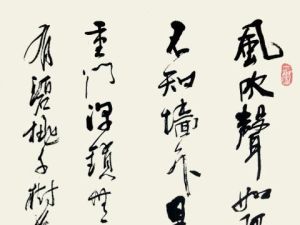 風吹聲如
不知墻外是
重門深鎖無
有碧桃千樹